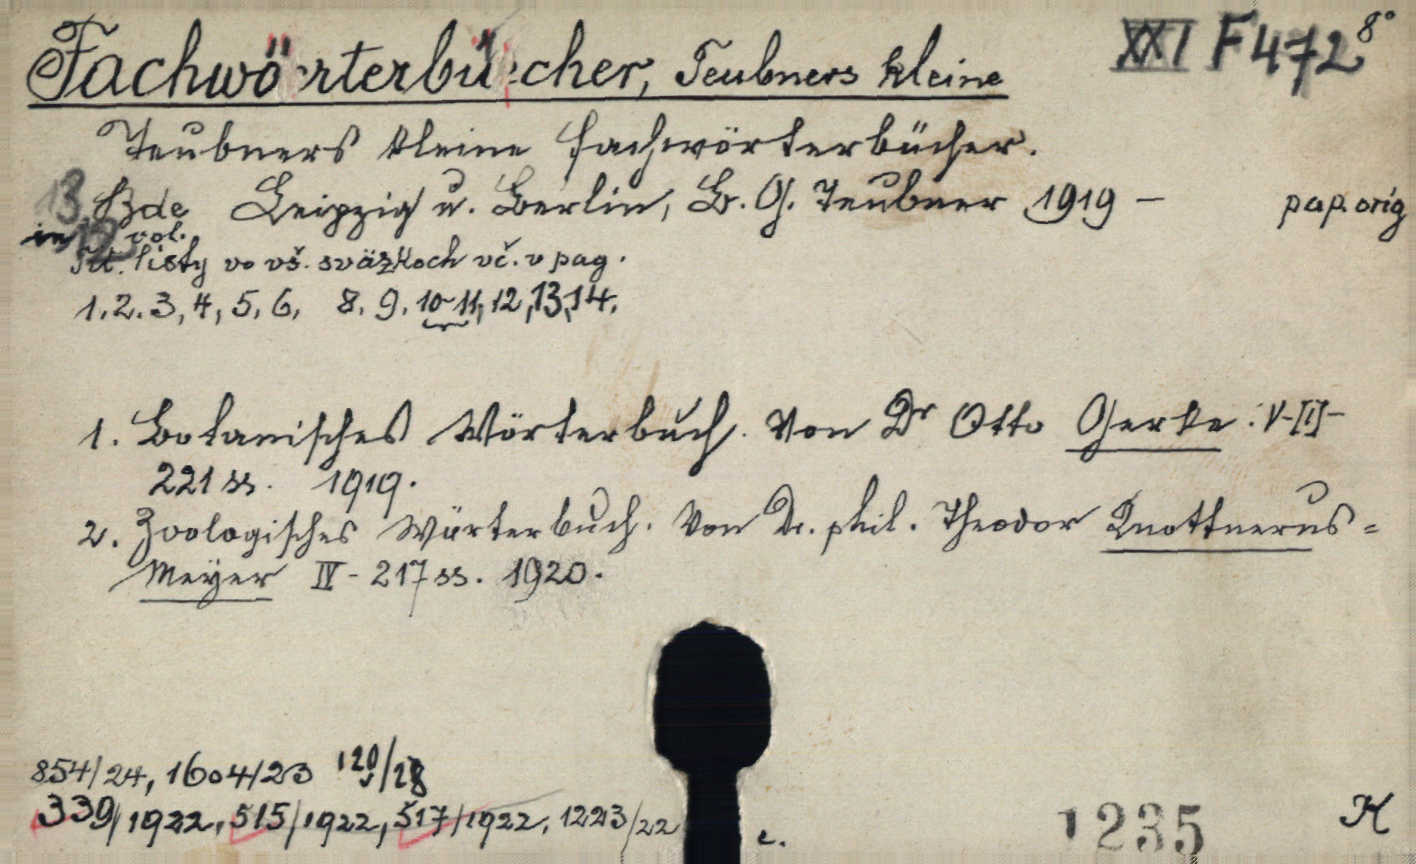 Fachwörterbücher, Teubners kleine XXI F 472 8°
Teubners kleine Fachwörterbücher.
13 Bde Leipzig u. Berlin, B. G. Teubner 1919 – pap. orig
in 12 vol.
Tit. listy vo vš. sväzkoch vč. v pag.
1. 2. 3, 4, 5, 6, 8. 9. 10-11, 12, 13, 14.
1. Botanisches Wörterbuch. Von Dr Otto Gerke : V-[1]-
221 ss. 1919.
2. Zoologisches Wörterbuch. Von Dr. phil. Theodor Knottnerus=
Meyer IV - 217 ss. 1920.
854/24, 1604/23 120/28
339/1922, 515/1922, 517/1922, 1223/22 c.
1235 K